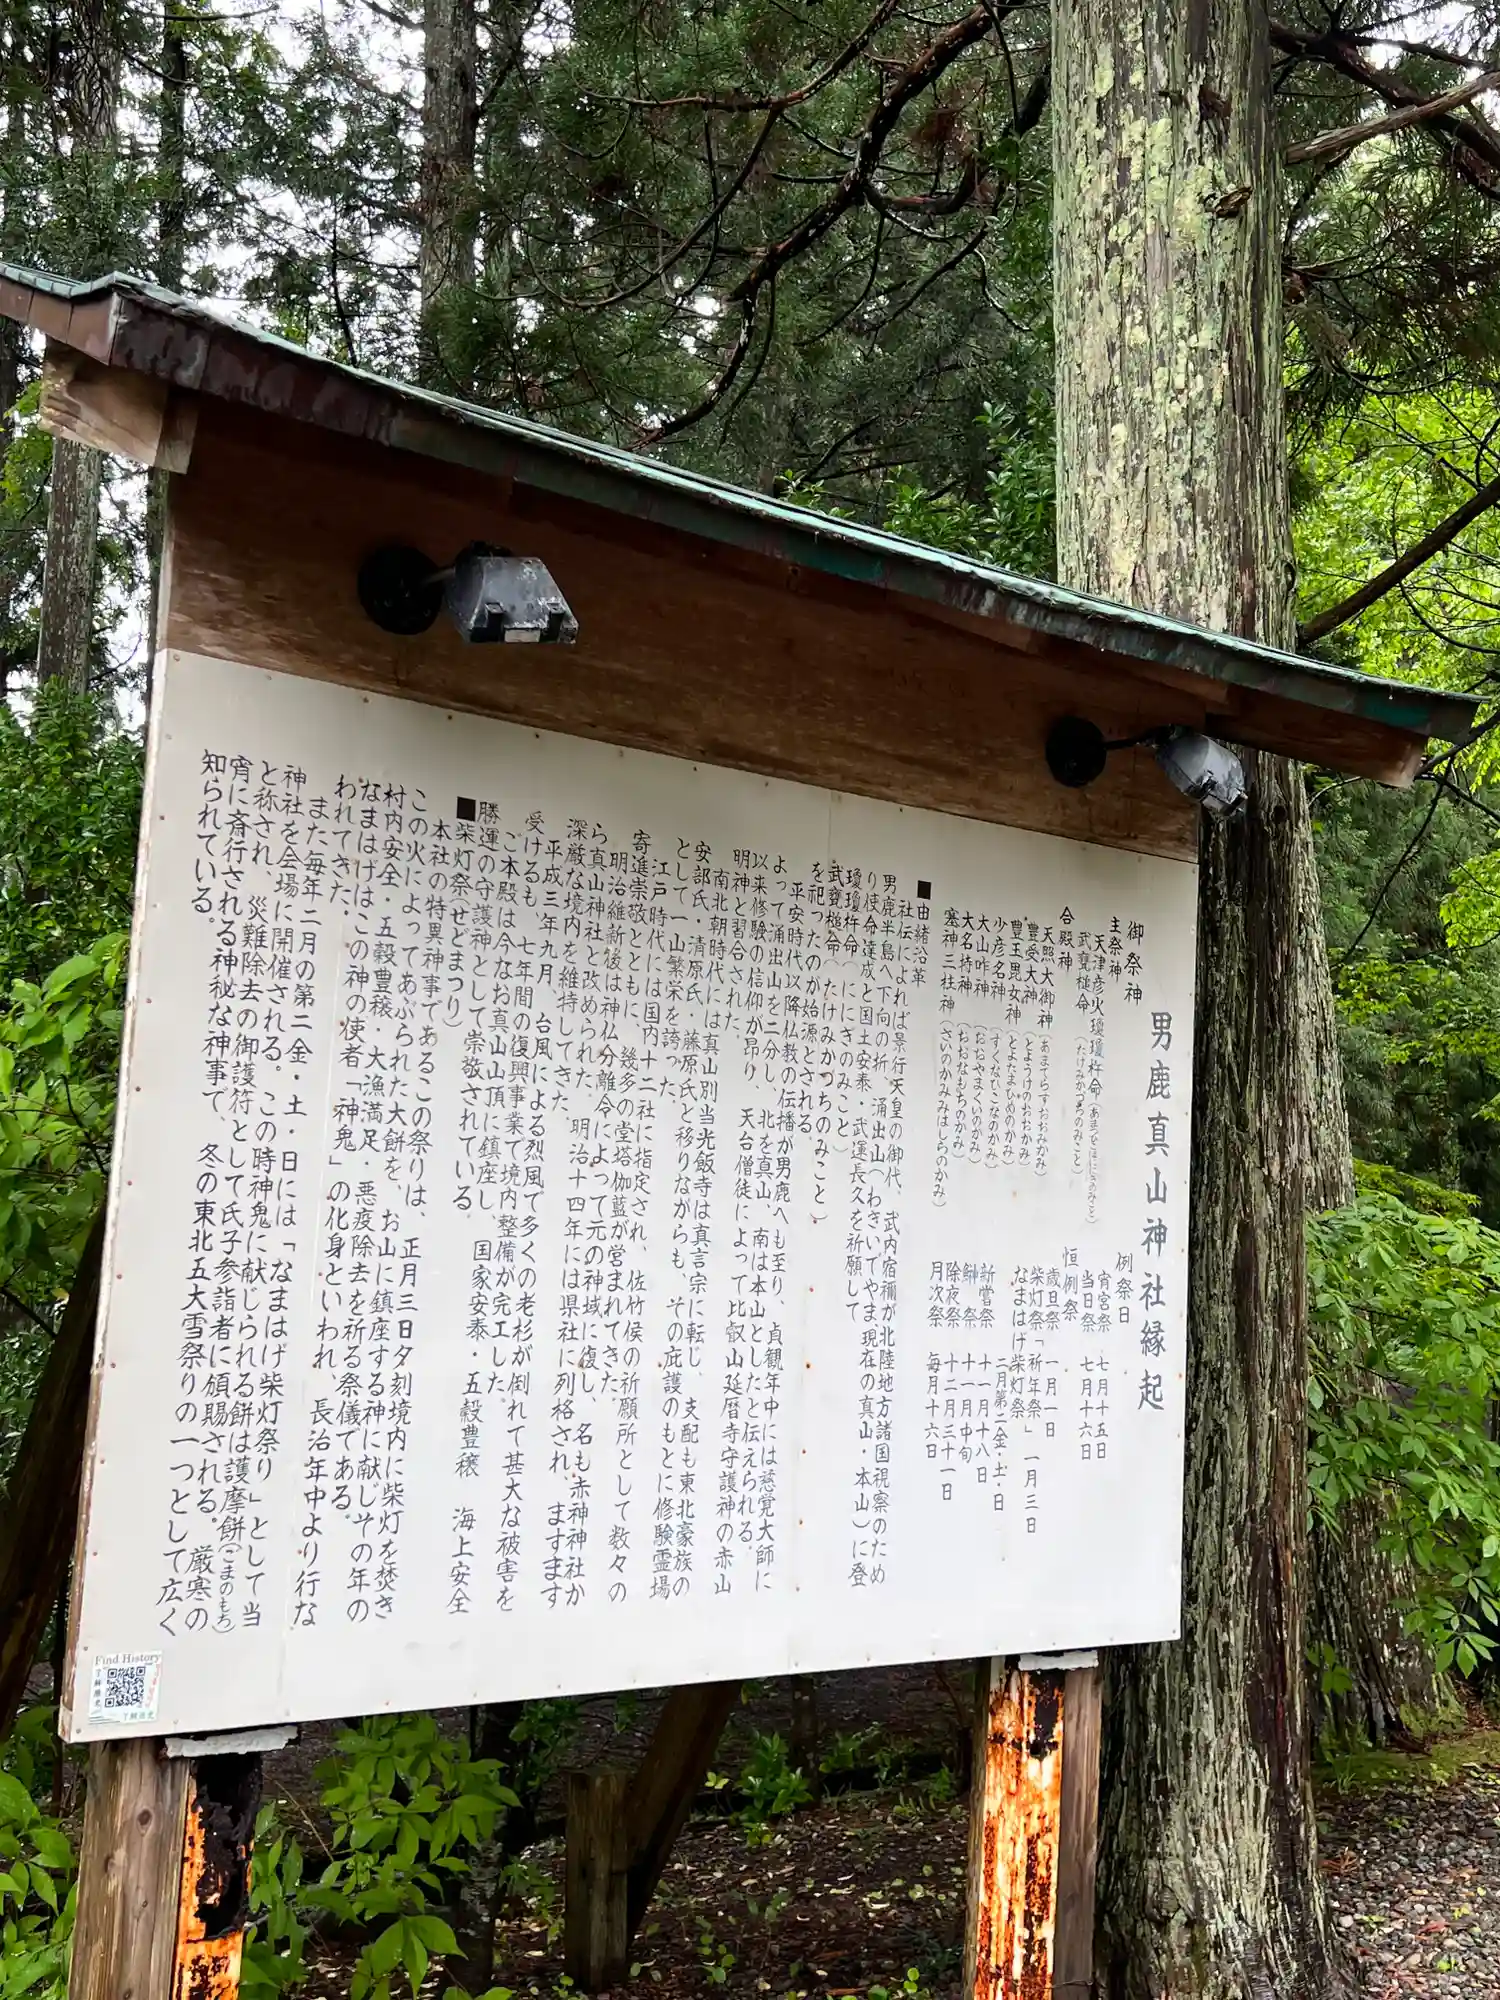 男鹿真山神社縁起
御祭神
主祭神
天津彦火瓊瓊杵命
武甕槌命(たけみかづちのみこと)
合殿神
天照大御神(あまてらすおおみかみ)
豊受大神(とようけのおおかみ)
豊玉毘女神(とよたまひめのかみ)
少彦名神(すくなひこなのかみ)
大山咋神(おおやまくいのかみ)
大名持神(おおなもちのかみ)
塞神三柱神(さいのかみみはしらのかみ)
例祭日
宵宮祭 七月十五日
当日祭 七月十六日
恒例祭
歳旦祭 一月一日
柴灯祭「祈年祭」 一月三日
なまはげ柴灯祭
二月第二金・土・日
新嘗祭 十一月十八日
祭 十一月中旬
除夜祭 十二月三十一日
月次祭 毎月十六日
■由緒沿革
社伝によれば景行天皇の御代、武内宿禰が北陸地方諸国視察のため
男鹿半島へ下向の折、涌出山(わきいでやま、現在の真山・本山)に登
り使命達成と国土安泰・武運長久を祈願して
瓊瓊杵命(ににぎのみこと)
武甕槌命(たけみかづちのみこと)
を祀ったのが始源とされる。
平安時代以降仏教の伝播が男鹿へも至り、貞観年中には慈覚大師に
よって涌出山を二分し、北を真山、南は本山としたと伝えられる。
以来修験の信仰が昂り、天台僧徒によって比叡山延暦寺守護神の赤山
明神と習合された。
南北朝時代には真山別当光飯寺は真言宗に転じ、支配も東北豪族の
安部氏・清原氏・藤原氏と移りながらも、その庇護のもとに修験霊場
として一山繁栄を誇った。
江戸時代には国内十二社に指定され、佐竹侯の祈願所として数々の
寄進崇敬とともに、幾多の堂塔伽藍が営まれてきた。
明治維新後は神仏分離令によって元の神域に復し、名も赤神神社か
ら真山神社と改められた。明治十四年には県社に列格され、ますます
深厳な境内を維持してきた。
平成三年九月、台風による烈風で多くの老杉が倒れて甚大な被害を
受けるも、七年間の復興事業で境内整備が完工した。
ご本殿は今なお真山山頂に鎮座し、国家安泰・五穀豊穣 海上安全
勝運の守護神として崇敬されている。
■柴灯祭(せどまつり)
本社の特異神事であるこの祭りは、正月三日夕刻境内に柴灯を焚き
この火によってあぶられた大餅を、お山に鎮座する神に献じその年の
村内安全・五穀豊穣・大漁満足・悪疫除去を祈る祭儀である。
なまはげはこの神の使者「神鬼」の化身といわれ、長治年中より行な
われてきた。
また毎年二月の第二金・土・日には「なまはげ柴灯祭り」として当
神社を会場に開催される。この時神鬼に献じられる餅は護摩餅(ごまのもち)
と称され、災難除去の御護符として氏子参詣者に頒賜される。厳寒の
宵に斎行される神秘な神事で、冬の東北五大雪祭りの一つとして広く
知られている。
Find History